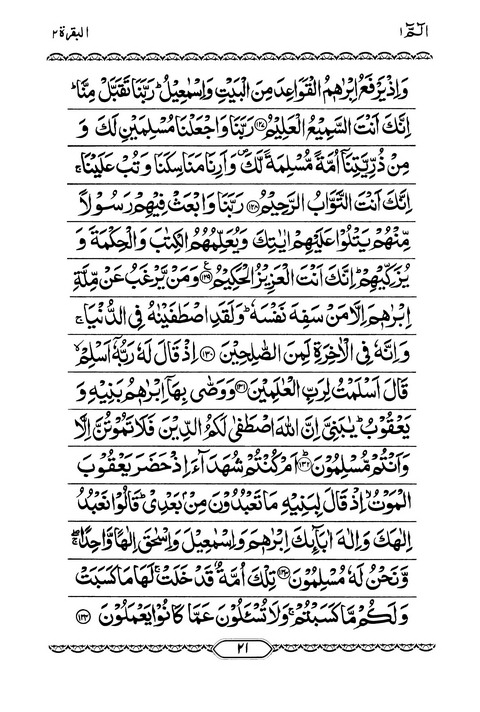 الٓـمّٓ ۱
البقرة ۲
وَاِذْ يَرْفَعُ اِبْرٰهٖمُ الْقَوَاعِدَ مِنَ الْبَيْتِ وَاِسْمٰعِيْلُ ؕ رَبَّنَا تَقَبَّلْ مِنَّا ؕ
اِنَّكَ اَنْتَ السَّمِيْعُ الْعَلِيْمُ ﴿۱۲۷﴾ رَبَّنَا وَاجْعَلْنَا مُسْلِمَيْنِ لَكَ وَ
مِنْ ذُرِّيَّتِنَاۤ اُمَّةً مُّسْلِمَةً لَّكَ ۪ وَاَرِنَا مَنَاسِكَنَا وَتُبْ عَلَيْنَا ۚ
اِنَّكَ اَنْتَ التَّوَّابُ الرَّحِيْمُ ﴿۱۲۸﴾ رَبَّنَا وَابْعَثْ فِيْهِمْ رَسُوْلًا
مِّنْهُمْ يَتْلُوْا عَلَيْهِمْ اٰيٰتِكَ وَيُعَلِّمُهُمُ الْكِتٰبَ وَالْحِكْمَةَ وَ
يُزَكِّيْهِمْ ؕ اِنَّكَ اَنْتَ الْعَزِيْزُ الْحَكِيْمُ ﴿۱۲۹﴾ وَمَنْ يَّرْغَبُ عَنْ مِّلَّةِ
اِبْرٰهٖمَ اِلَّا مَنْ سَفِهَ نَفْسَهٗ ؕ وَلَقَدِ اصْطَفَيْنٰهُ فِى الدُّنْيَا ۚ
وَاِنَّهٗ فِى الْاٰخِرَةِ لَمِنَ الصّٰلِحِيْنَ ﴿۱۳۰﴾ اِذْ قَالَ لَهٗ رَبُّهٗۤ اَسْلِمْ ۙ
قَالَ اَسْلَمْتُ لِرَبِّ الْعٰلَمِيْنَ ﴿۱۳۱﴾ وَوَصّٰى بِهَاۤ اِبْرٰهٖمُ بَنِيْهِ وَ
يَعْقُوْبُ ؕ يٰبَنِىَّ اِنَّ اللّٰهَ اصْطَفٰى لَكُمُ الدِّيْنَ فَلَا تَمُوْتُنَّ اِلَّا
وَاَنْتُمْ مُّسْلِمُوْنَ ؕ﴿۱۳۲﴾ اَمْ كُنْتُمْ شُهَدَآءَ اِذْ حَضَرَ يَعْقُوْبَ
الْمَوْتُ ۙ اِذْ قَالَ لِبَنِيْهِ مَا تَعْبُدُوْنَ مِنْۢ بَعْدِىْ ؕ قَالُوْا نَعْبُدُ
اِلٰهَكَ وَاِلٰهَ اٰبَآئِكَ اِبْرٰهٖمَ وَاِسْمٰعِيْلَ وَاِسْحٰقَ اِلٰهًا وَّاحِدًا ۖۚ
وَّنَحْنُ لَهٗ مُسْلِمُوْنَ ﴿۱۳۳﴾ تِلْكَ اُمَّةٌ قَدْ خَلَتْ ۚ لَهَا مَا كَسَبَتْ
وَلَكُمْ مَّا كَسَبْتُمْ ۚ وَلَا تُسْئَلُوْنَ عَمَّا كَانُوْا يَعْمَلُوْنَ ﴿۱۳۴﴾
۲۱